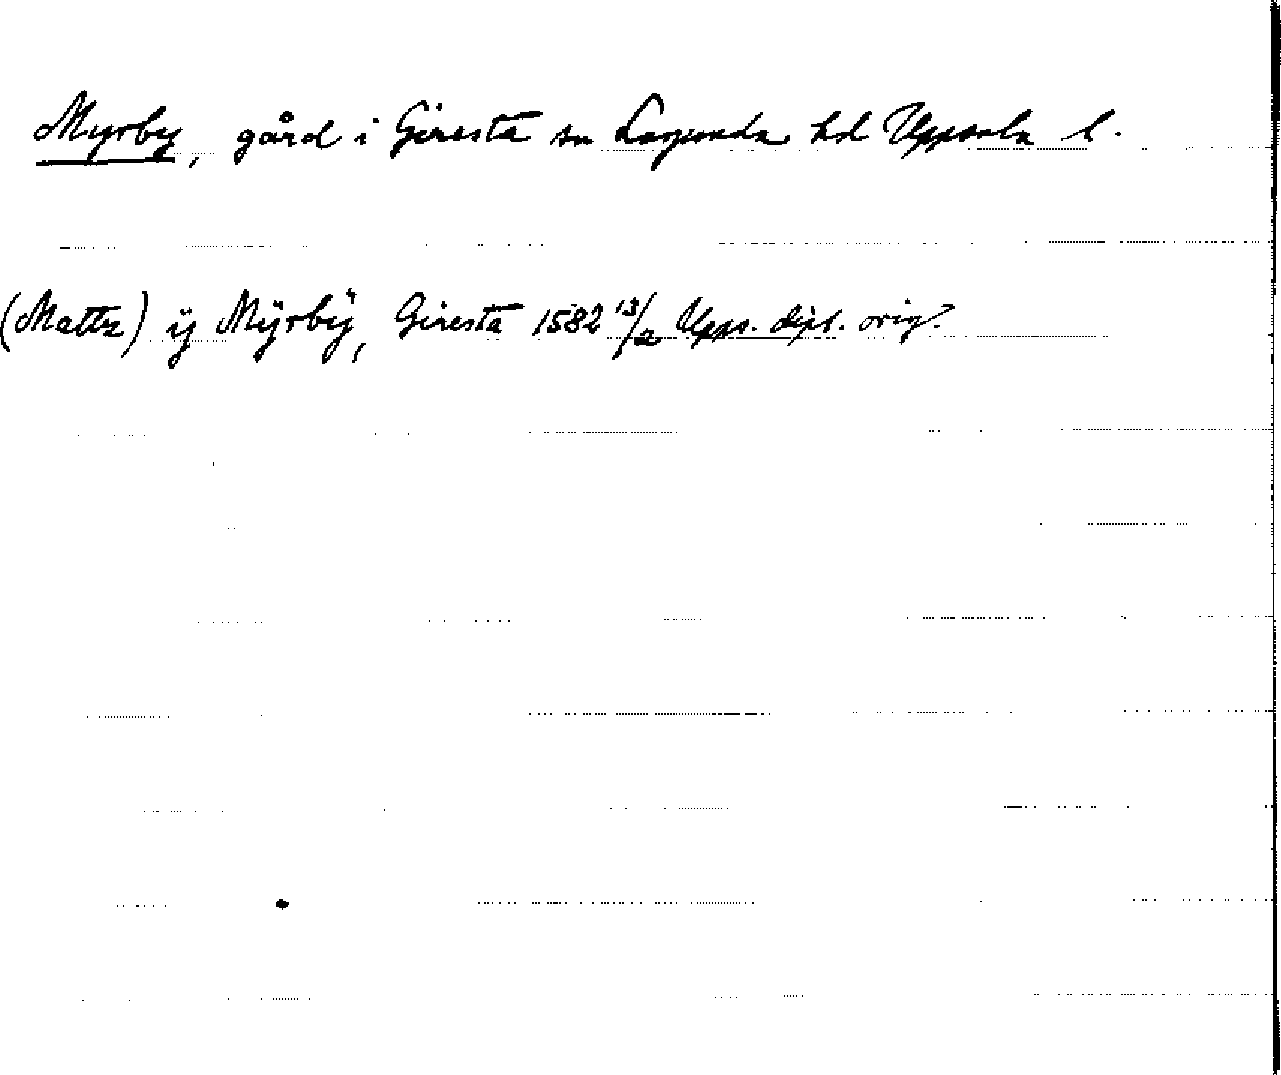 Myrby, gård i Giresta sn Lagunda hd Uppsala l.
(Mattz) ÿ Mÿrbÿ, Giresta 1582 13/2 Upps. dipl. orig.